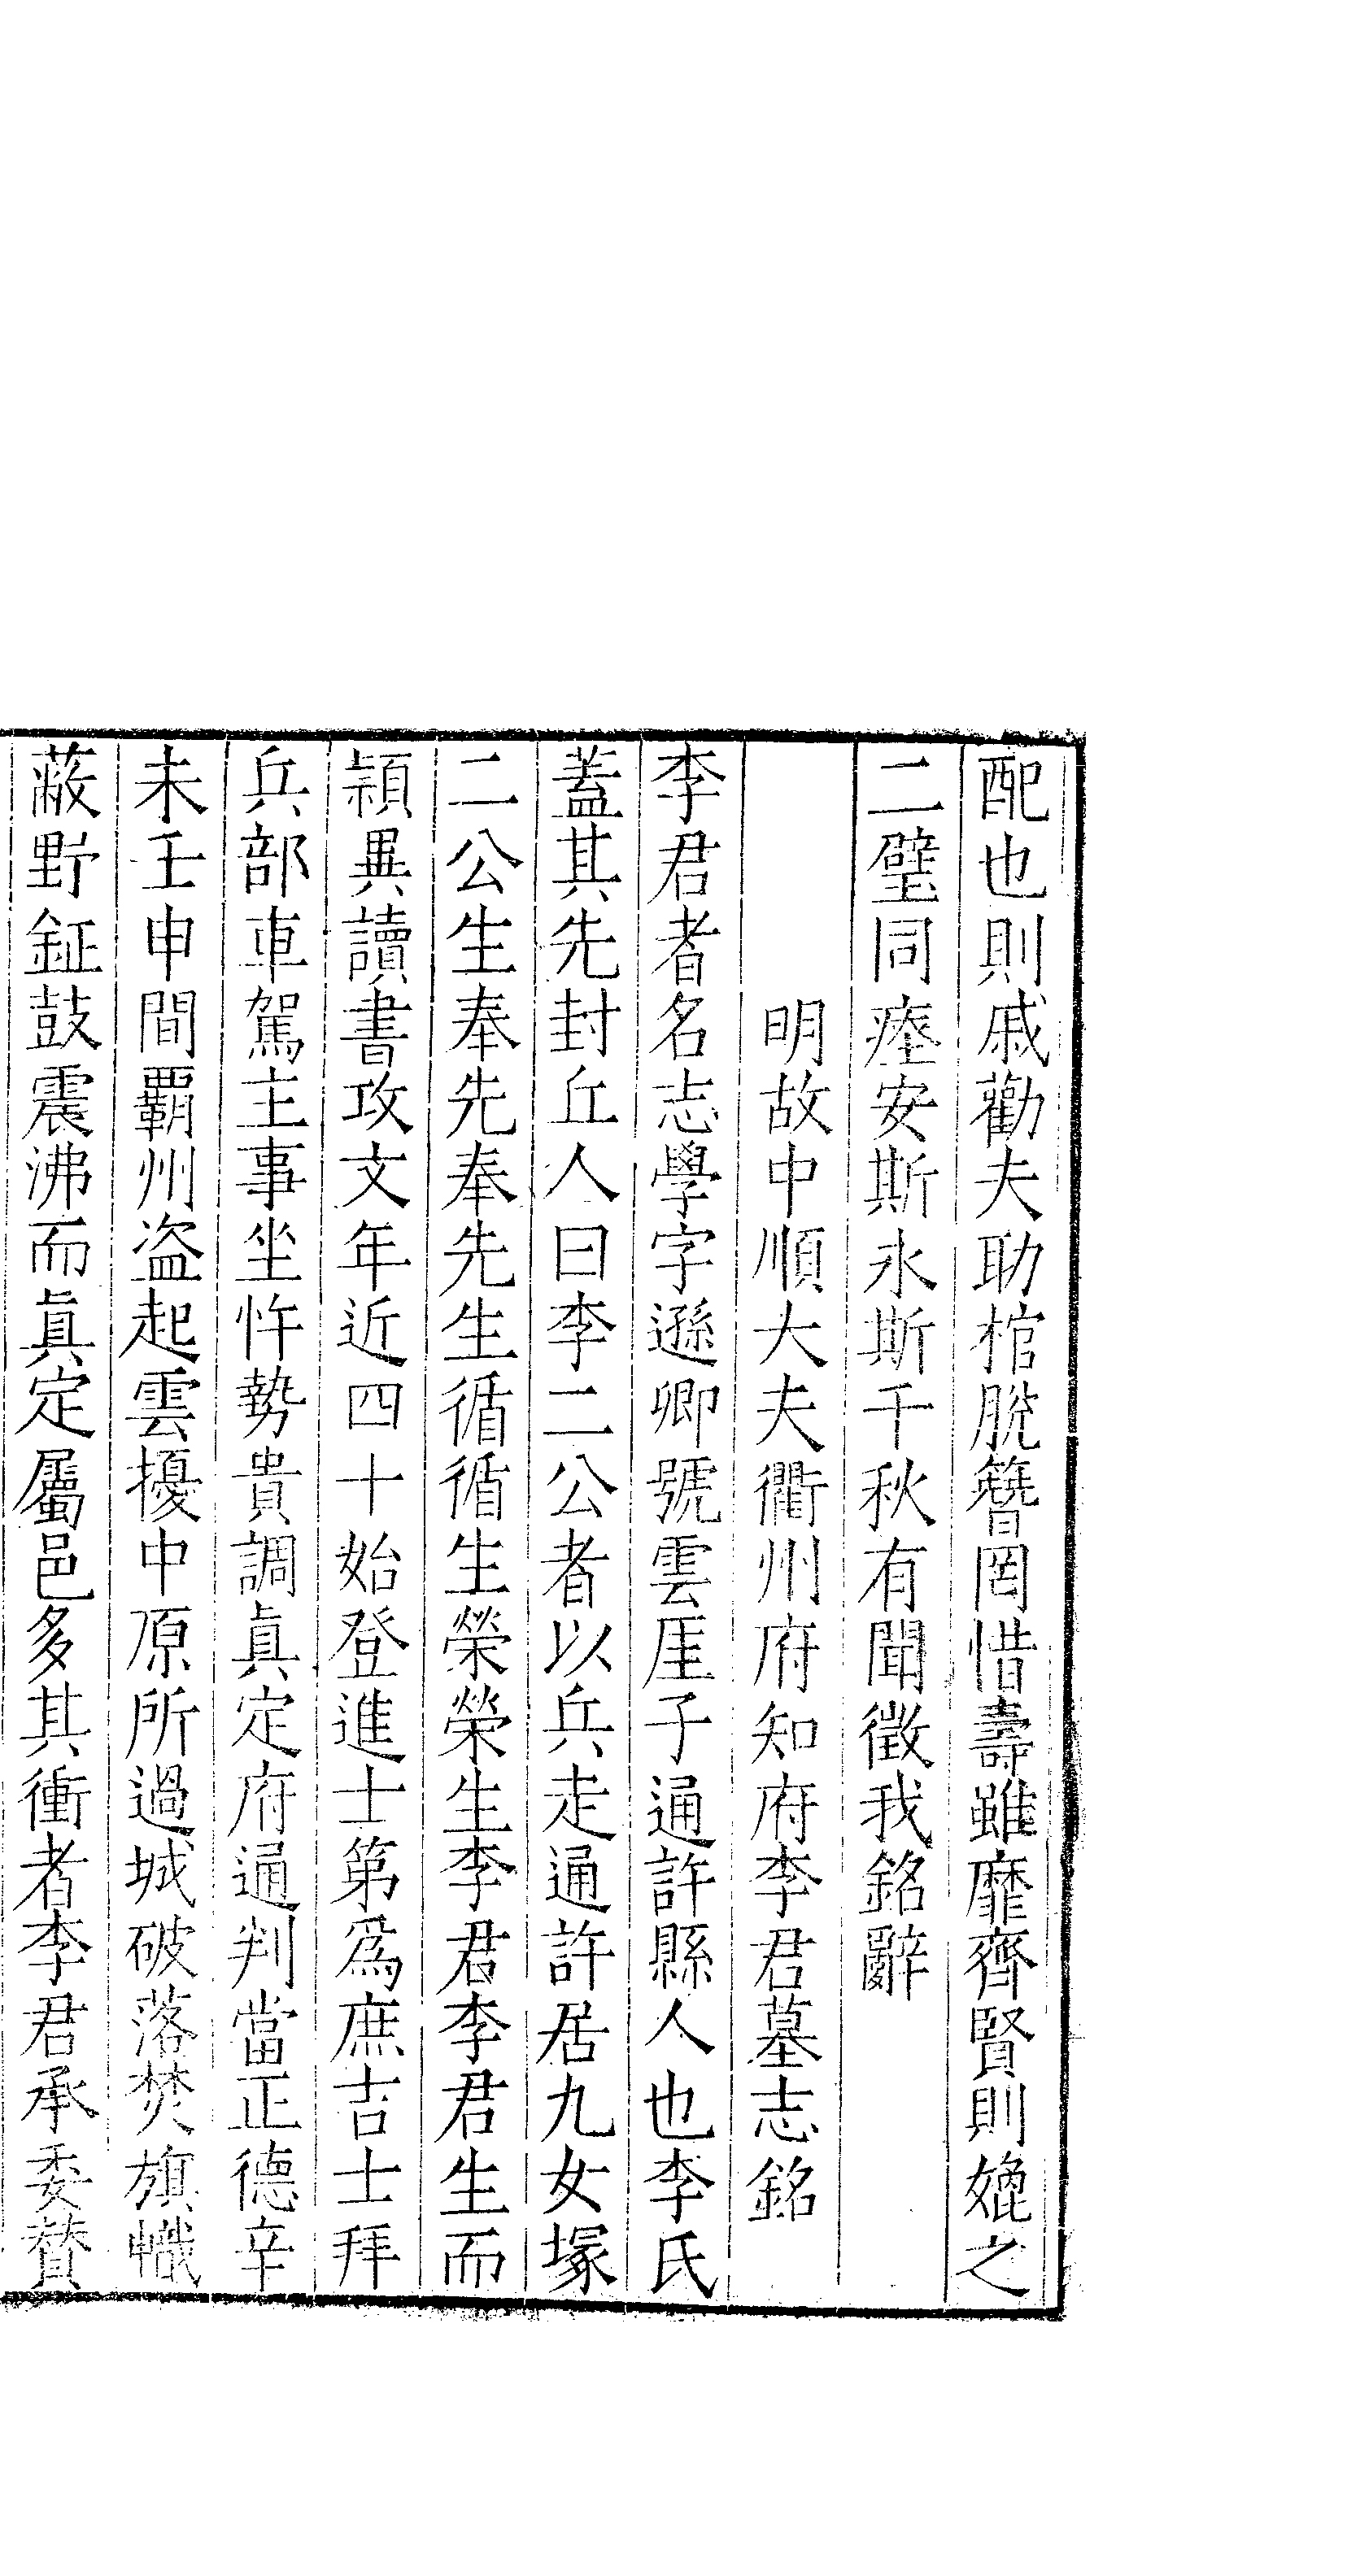 配也則戚勸夫助棺脫簪罔惜壽雖靡齊賢則媲之
二璧同瘞安斯永斯千秋有聞徵我銘辭
明故中順大夫衢州府知府李君墓志銘
李君者名志學字遜卿號雲厓子通許縣人也李氏
蓋其先封丘人曰李二公者以兵走通許居九女塚
二公生奉先奉先生循循生榮榮生李君李君生而
穎異讀書攻文年近四十始登進士第爲庶吉士拜
兵部車駕主事坐忤勢貴調眞定府通判當正德辛
未壬申間霸州盗起雲擾中原所過城破落焚旗幟
蔽野鉦鼓震沸而眞定屬邑多其衝者李君承委贊